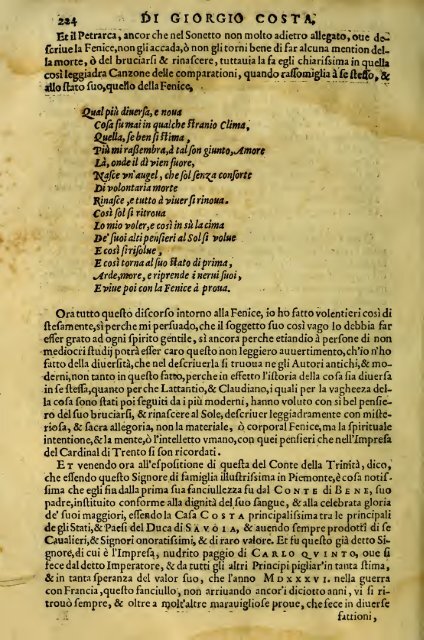 224 DI GIORGIO COSTA,
Et il Petrarca, ancor che nel Sonetto non molto adietro allegato, oue de-
scriue la Fenice, non gli accada, ò non gli torni bene di far alcuna mention del-
la morte, ò del bruciarsi & rinascere, tuttauia la fa egli chiarissima in quella
così leggiadra Canzone delle comparationi, quando rassomiglia à se stesso, &
allo stato suo, questo della Fenice,
Qual più diuersa, e noua
Cosa fu mai in qualche stranio Clima,
Quella, se ben si stima,
Più mi rassembra, à tal son giunto, Amore
Là, onde il dì vien fuore,
Nasce vn'augel, che sol senza consorte
Di volontaria morte
Rinasce, e tutto à viuer si rinoua.
Così sol si ritroua
Lo mio voler, e così in sù la cima
De' suoi alti pensieri al Sol si volue
E così si risolue,
E così torna al suo stato di prima,
Arde, more, e riprende i nerui suoi,
E viue poi con la Fenice à proua.
Ora tutto questo discorso intorno alla Fenice, io ho fatto volentieri così di
stesamente, sì perche mi persuado, che il soggetto suo così vago lo debbia far
esser grato ad ogni spirito gentile, sì ancora perche etiandio à persone di non
mediocri studij potrà esser caro questo non leggiero auuertimento, ch'io n'ho
fatto della diuersità, che nel descriuerla si truoua ne gli Autori antichi, & mo-
derni, non tanto in questo fatto, perche in effetto l'istoria della cosa sia diuersa
in se stessa, quanto per che Lattantio, & Claudiano, i quali per la vaghezza del-
la cosa sono stati poi seguiti da i più moderni, hanno voluto con sì bel pensie-
ro del suo bruciarsi, & rinascere al Sole, descriuer leggiadramente con miste-
riosa, & sacra allegoria, non la materiale, ò corporal Fenice, ma la spirituale
intentione, & la mente, ò l'intelletto vmano, con quei pensieri che nell'Impresa
del Cardinal di Trento si son ricordati.
ET venendo ora all'espositione di questa del Conte della Trinità, dico,
che essendo questo Signore di famiglia illustrissima in Piemonte, è cosa notis-
sima che egli fin dalla prima sua fanciullezza fu dal CONTE di BENE, suo
padre, instituito conforme alla dignità del suo sangue, & alla celebrata gloria
de' suoi maggiori, essendo la Casa COSTA principalissima tra le principali
de gli Stati, & Paesi del Duca di SAVOIA, & auendo sempre prodotti di se
Caualieri, & Signori onoratissimi, & di raro valore. Et fu questo già detto Si-
gnore, di cui è l'Impresa, nudrito paggio di CARLO QVINTO, oue si
fece dal detto Imperatore, & da tutti gli altri Principi pigliar'in tanta stima,
& in tanta speranza del valor suo, che l'anno MDXXXVI. nella guerra
con Francia, questo fanciullo, non arriuando ancor'i diciotto anni, vi si ri-
trouò sempre, & oltre a molt'altre marauigliose proue, che fece in diuerse
fattioni,